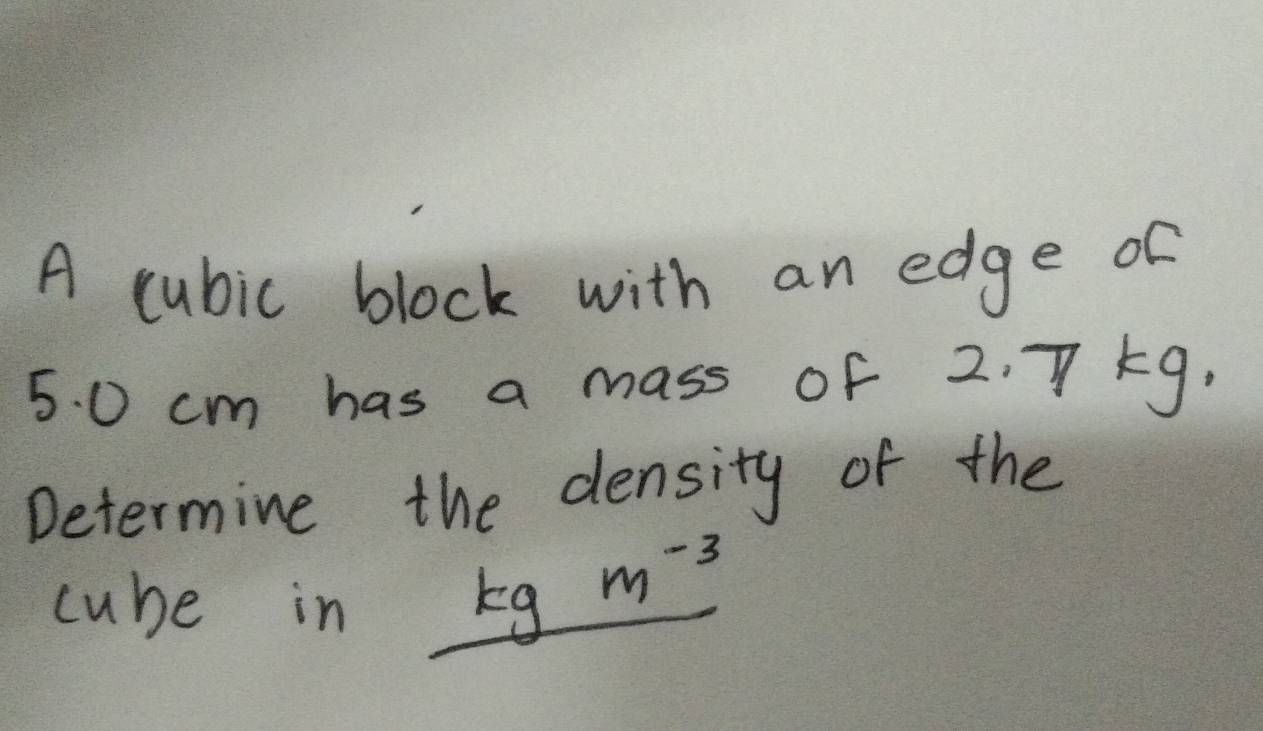 A cubic block with an edge of
5.0 cm has a mass of 2.7 kg.
Determine the density of the
cube in kg m⁻³